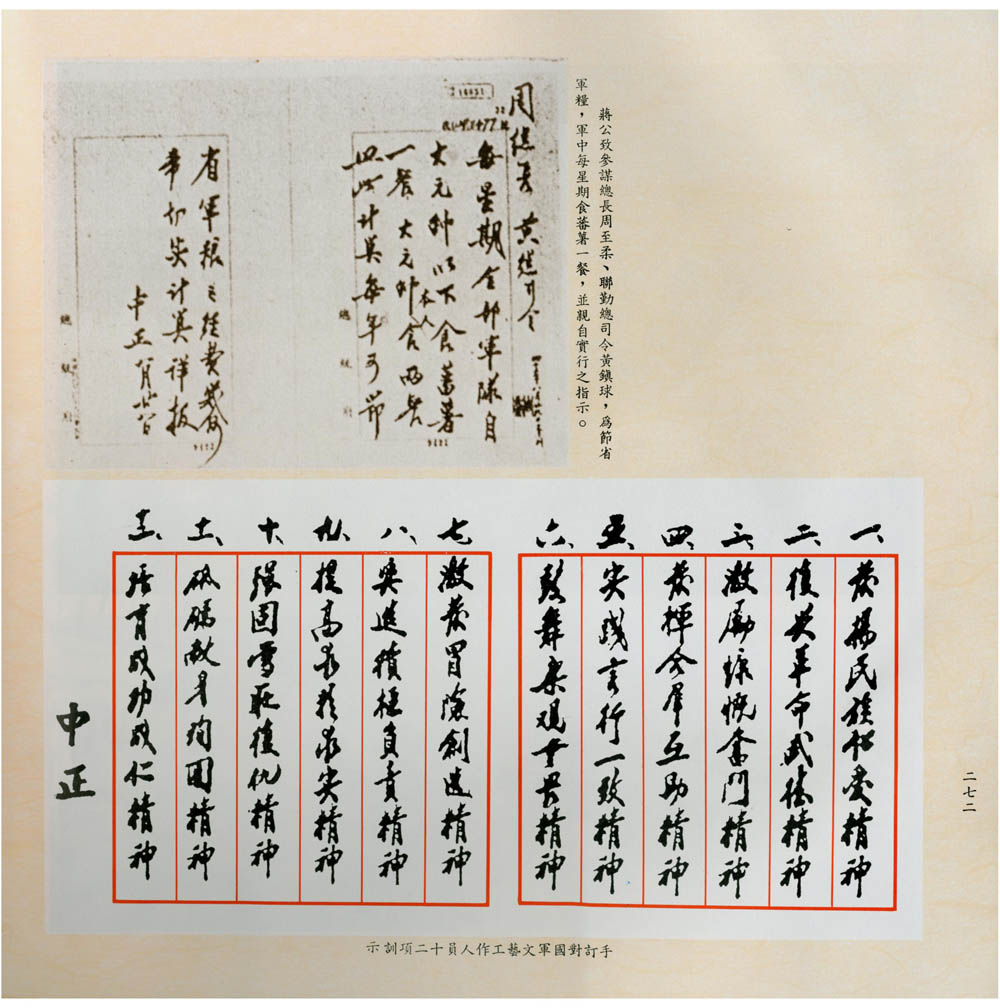 蔣公致參謀總長周至柔、聯勤總司令黃鎮球，為節省
軍糧，軍中每星期食蕃薯一餐，並親自實行之指示。
周總長 黃總司令
每星期全部軍隊自
大元帥以下食蕃薯
一餐 大元帥本人食兩餐
以此計算每年可節
省軍糧之經費幾何
希切實計算詳報
中正
總統府
總統府
一、發揚民族仁愛精神
二、復興革命武德精神
三、激勵慷慨奮鬥精神
四、發揮合群互助精神
五、實踐言行一致精神
六、鼓舞樂觀無畏精神
七、激發冒險創造精神
八、獎進積極負責精神
九、提高求精求實精神
十、強固雪恥復仇精神
十一、砥礪獻身殉國精神
十二、培育成功成仁精神
中正
手訂對國軍文藝工作人員十二項訓示
二七二